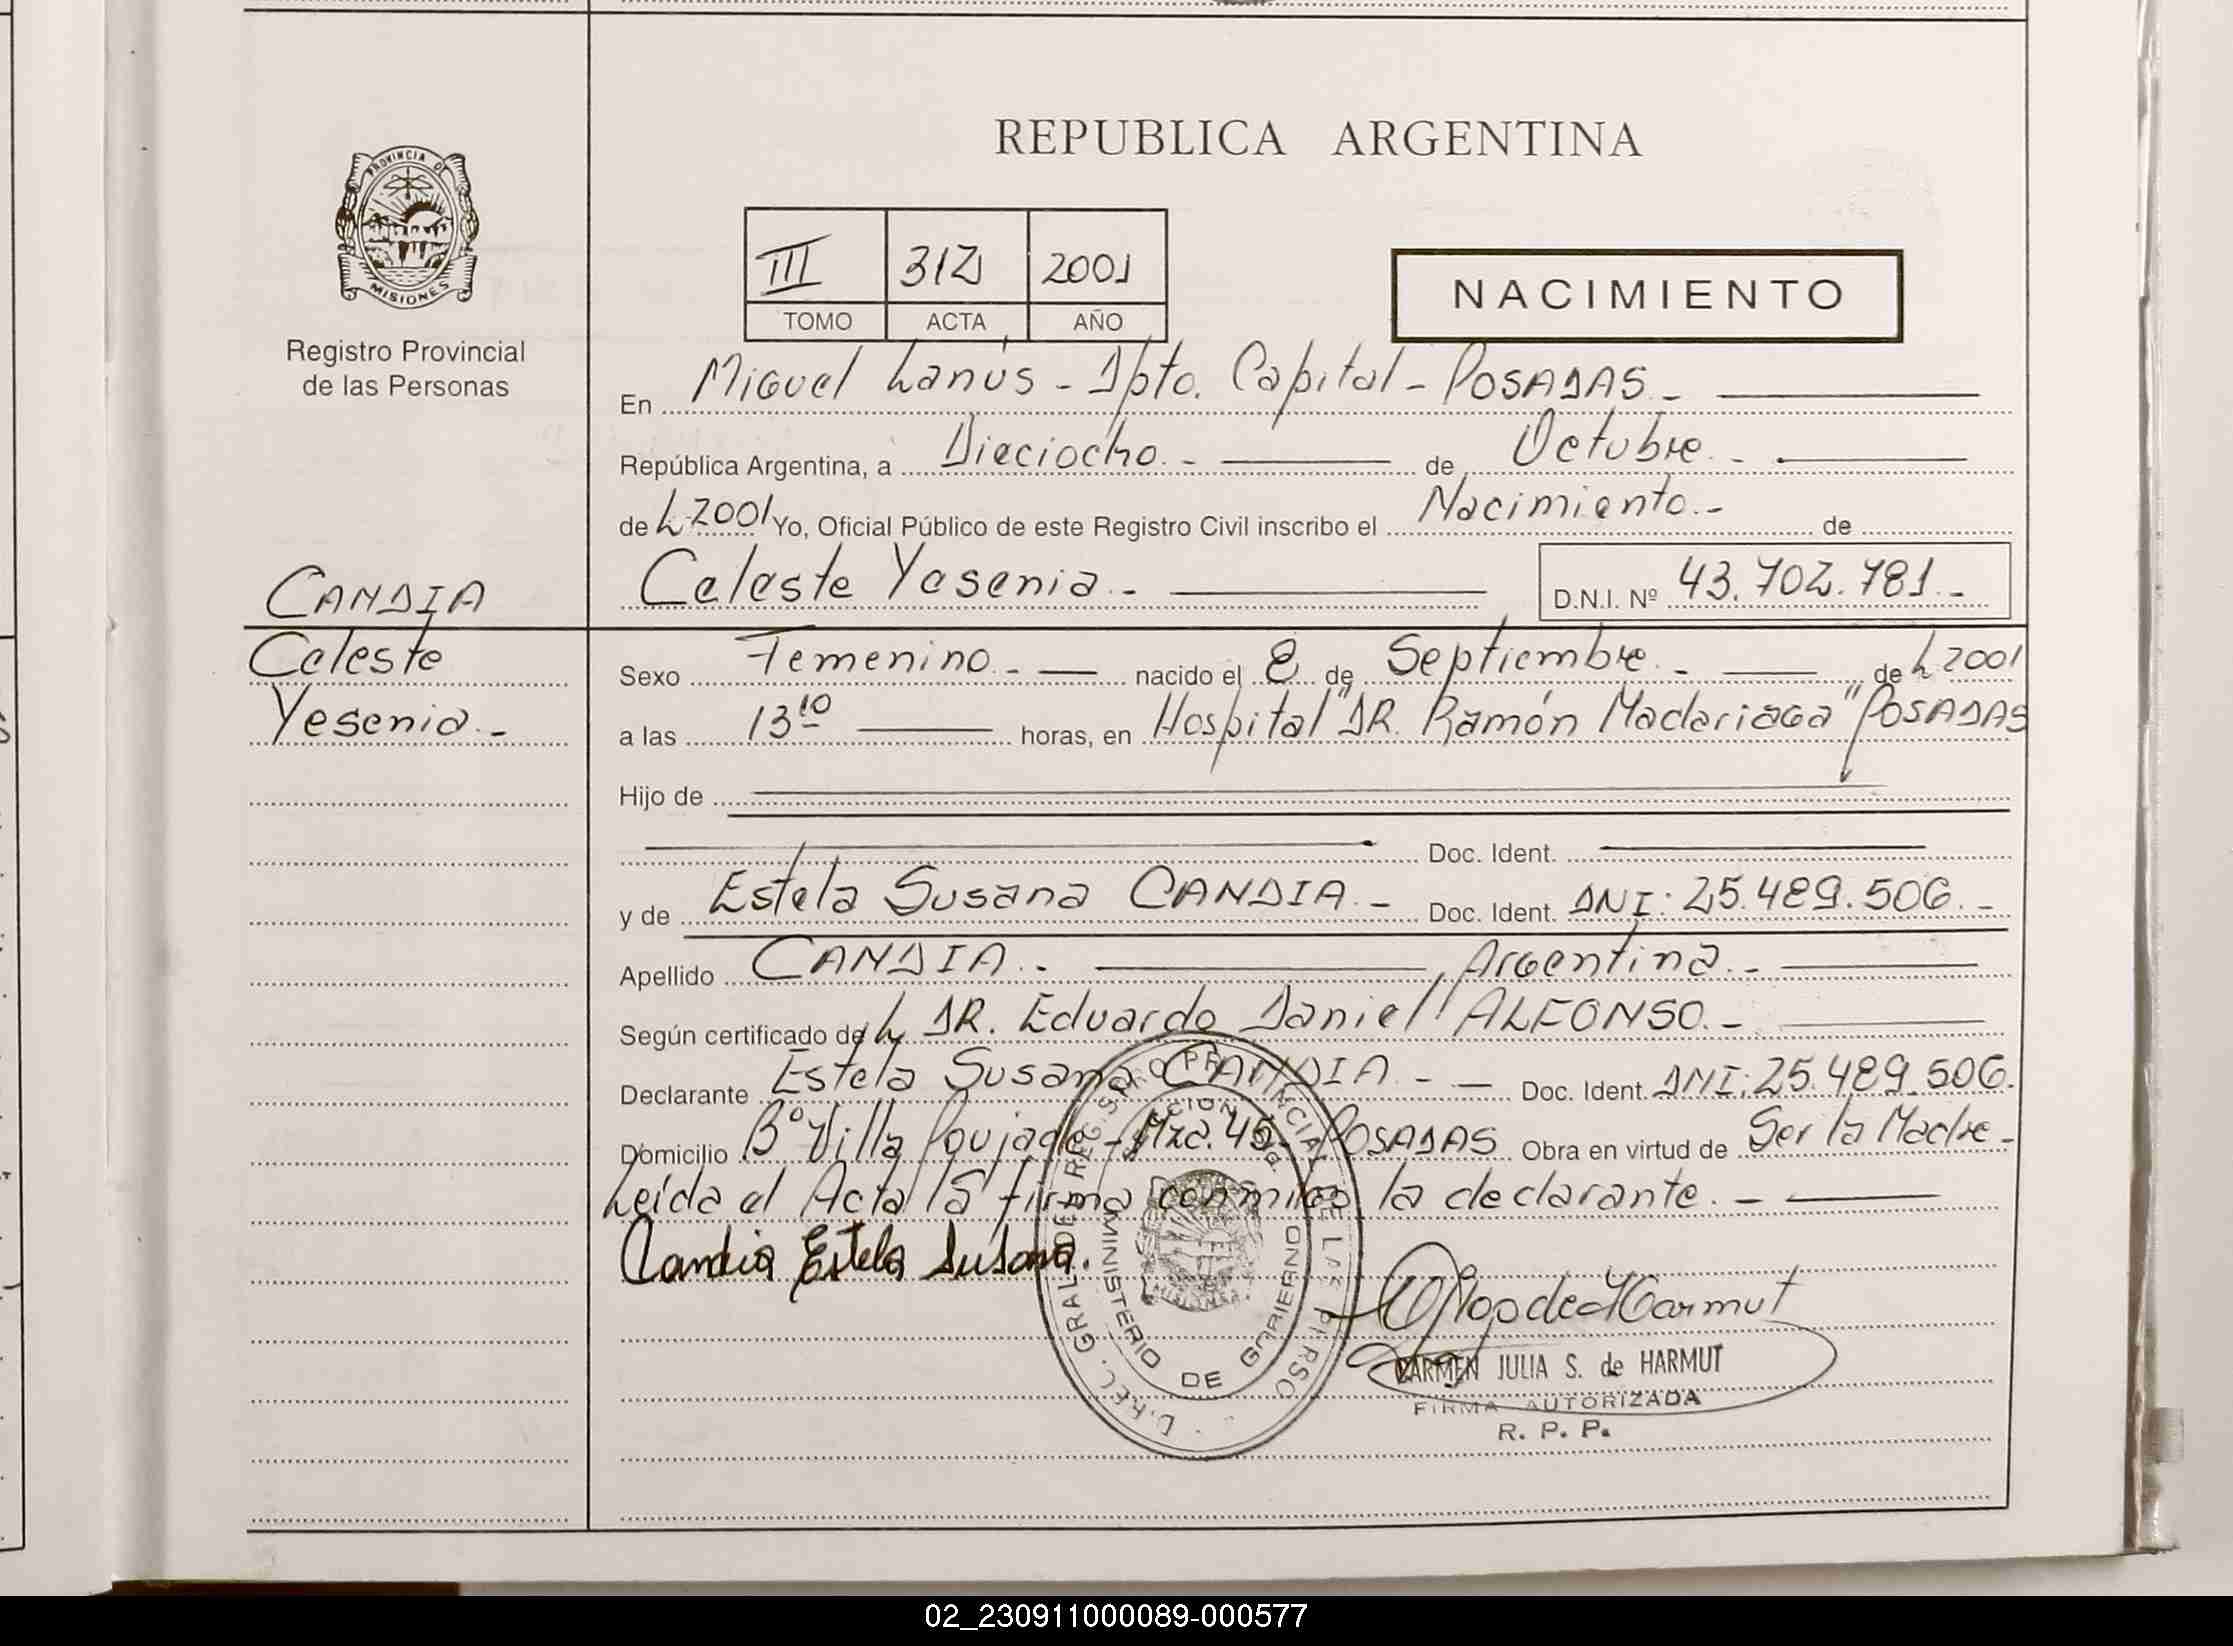 REPUBLICA ARGENTINA
PROVINCIA DE
MISIONES
Registro Provincial
de las Personas
III 312 2001
TOMO ACTA AÑO
NACIMIENTO
En Miguel Lanús - Dpto. Capital - POSADAS.-
República Argentina, a Dieciocho.- de Octubre.-
de L 2001 Yo, Oficial Público de este Registro Civil inscribo el Nacimiento.- de
CANDIA
Celeste Yesenia.- D.N.I. Nº 43.702.781.-
Celeste
Yesenia.-
Sexo Femenino.- nacido el 8 de Septiembre.- de L 2001
a las 13 10 horas, en Hospital "DR. Ramón Madariaga" POSADAS
Hijo de
Doc. Ident.
y de Estela Susana CANDIA.- Doc. Ident. DNI: 25.489.506.-
Apellido CANDIA.- Argentina.-
Según certificado de L DR. Eduardo Daniel ALFONSO.-
Declarante Estela Susana CANDIA - - Doc. Ident. DNI: 25.489.506.
Domicilio Bº Villa Poujade - Mza. 45- POSADAS Obra en virtud de Ser la Madre-
Leída el Acta la firma conmigo la declarante.-
Candia Estela Susana.
MINISTERIO DE GOBIERNO
CARMEN JULIA S. de HARMUT
FIRMA AUTORIZADA
R. P. P.
02_230911000089-000577